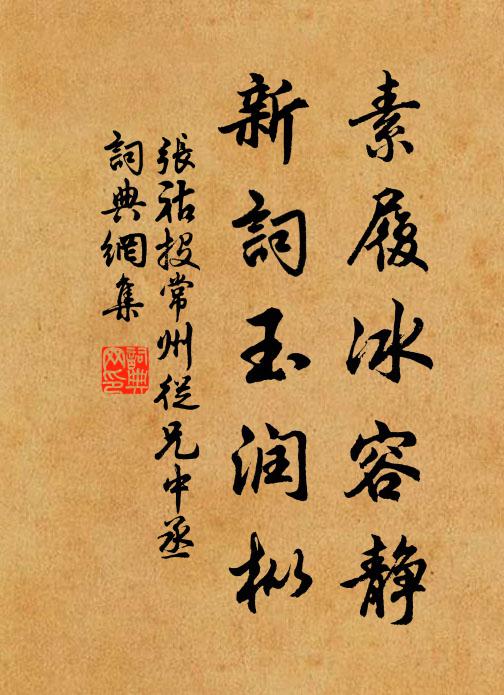 素履冰容静
新詞玉润枞
張祜投常州從兄中丞
詞典網集
詞典网印